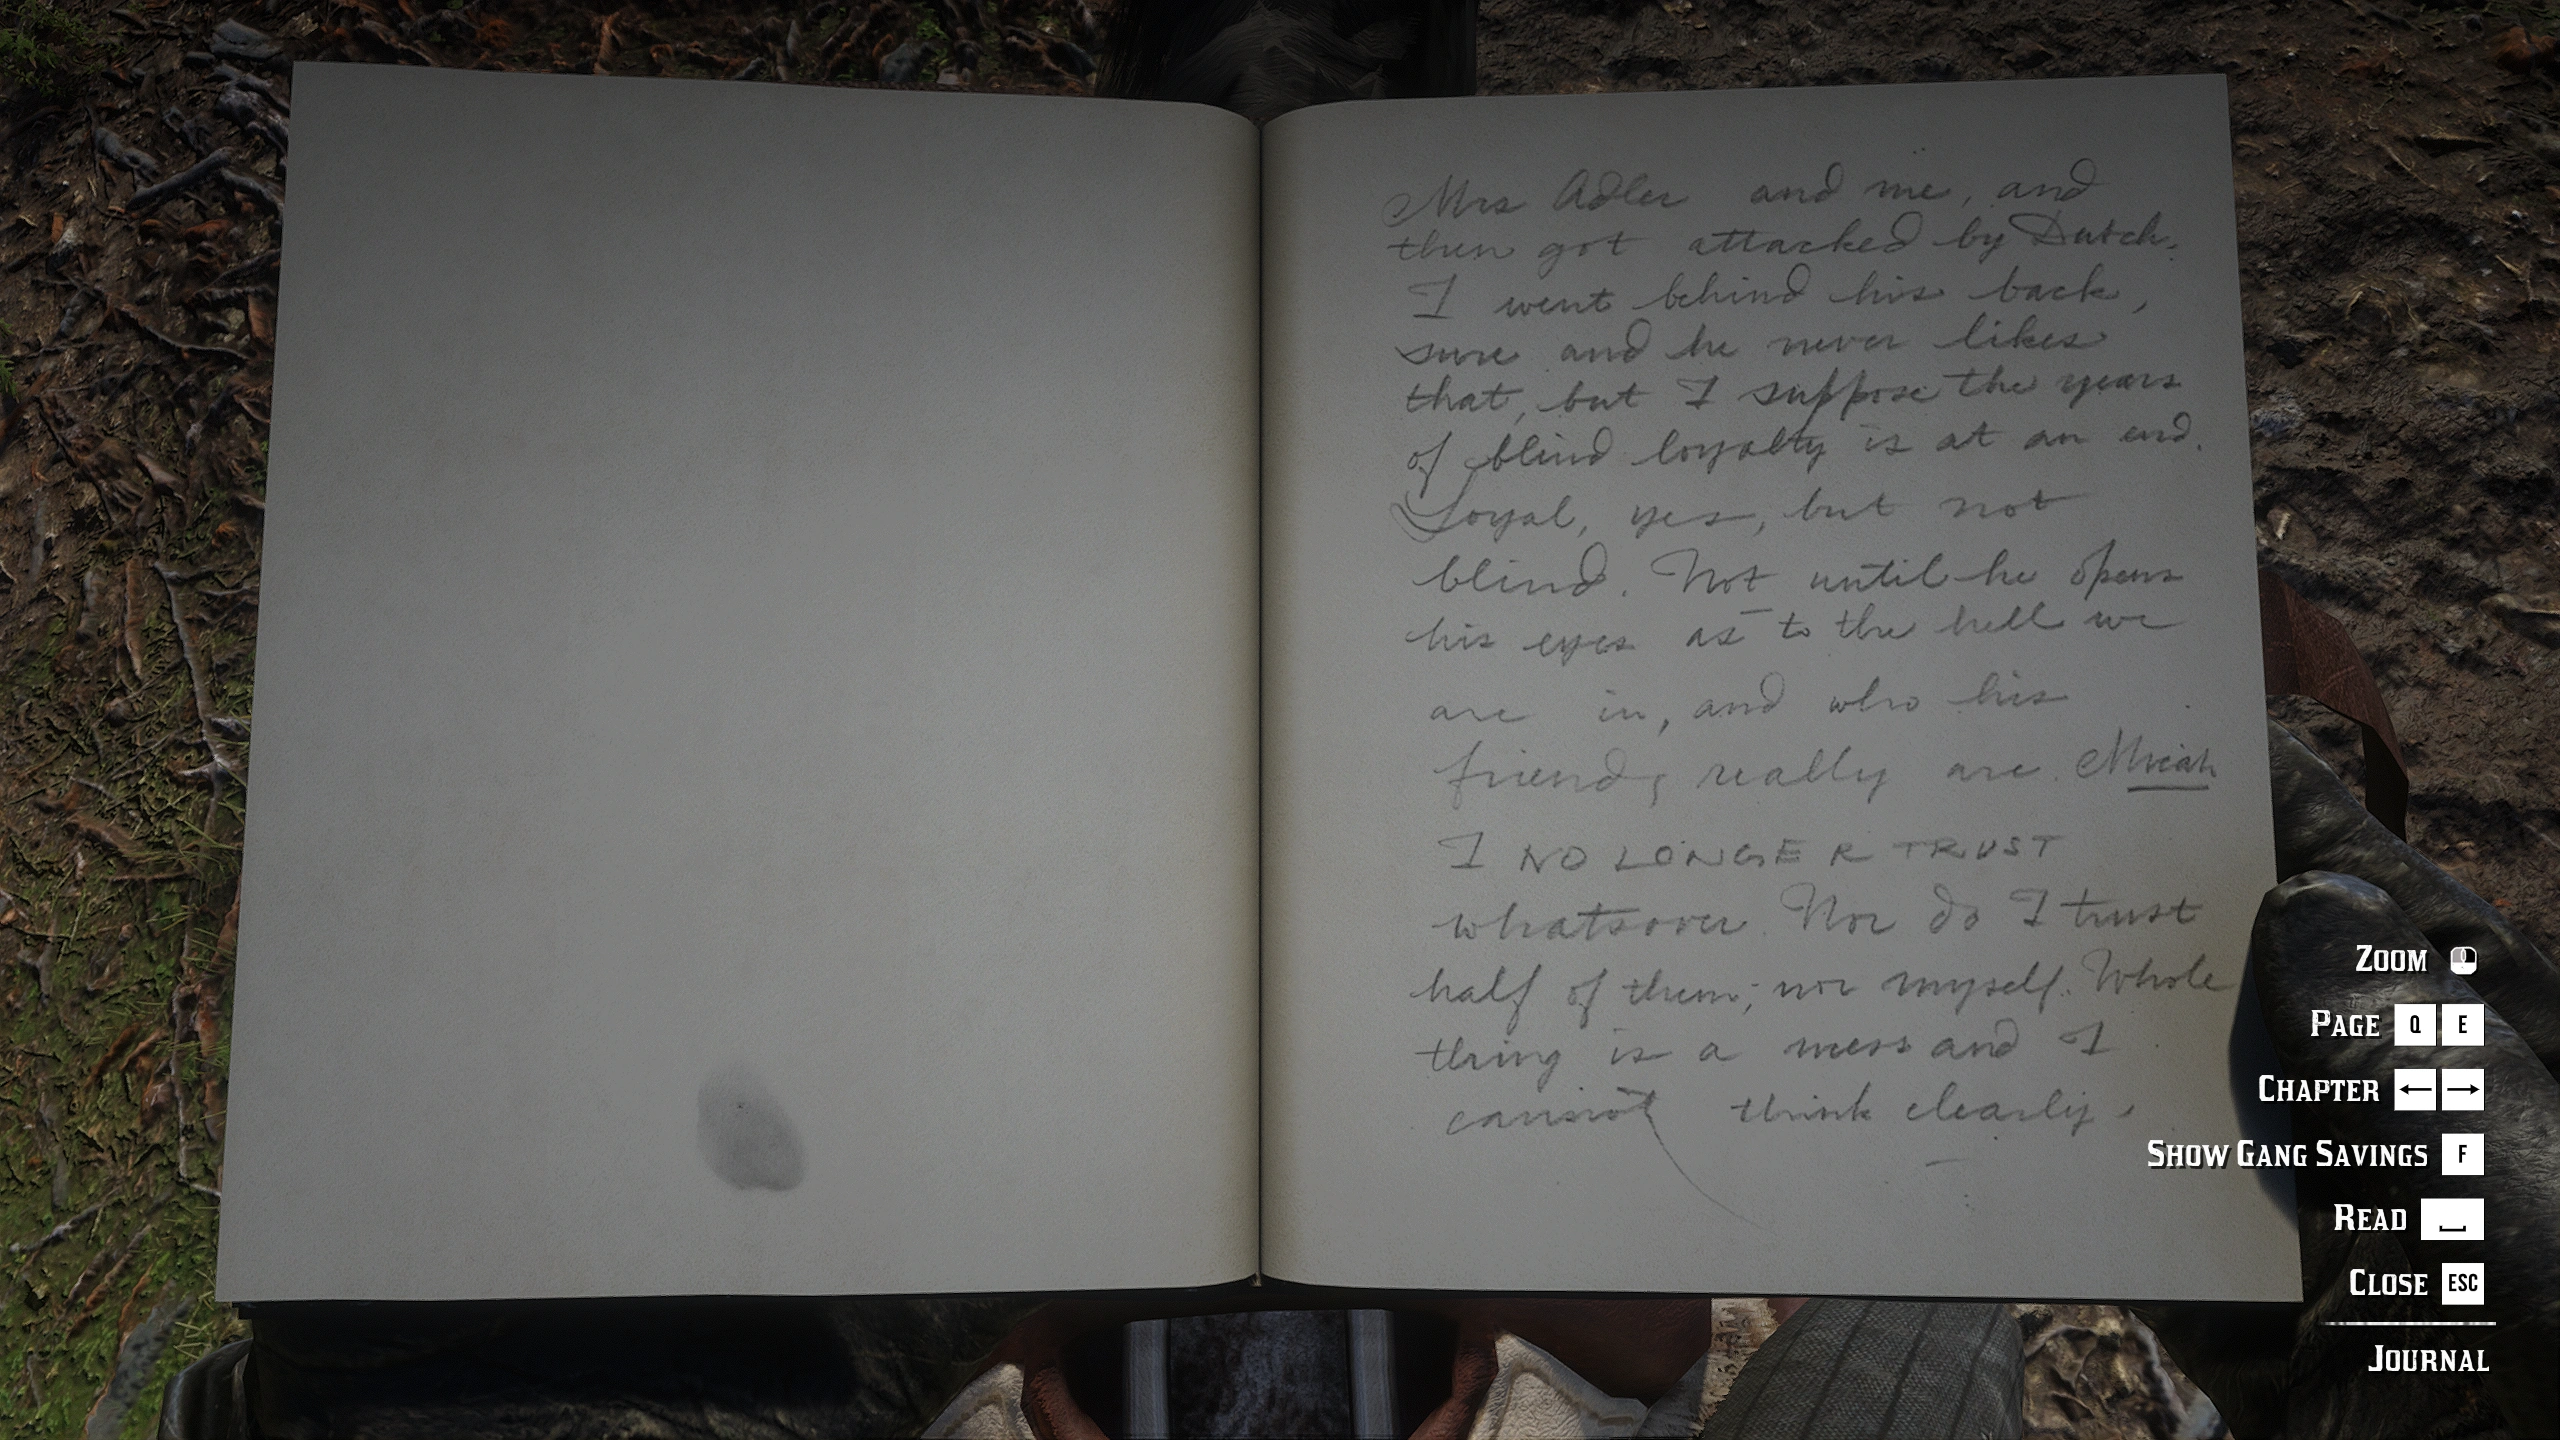 Mrs Adler and me, and
then got attacked by Dutch.
I went behind his back,
sure and he never likes
that, but I suppose the years
of blind loyalty is at an end.
Loyal, yes, but not
blind. Not until he opens
his eyes as to the hell we
are in, and who his
friends really are. Micah
I NO LONGER TRUST
whatsover. Nor do I trust
half of them; nor myself. Whole
thing is a mess and I
cannot think clearly.
ZOOM
PAGE Q E
CHAPTER ← →
SHOW GANG SAVINGS F
READ
CLOSE ESC
JOURNAL